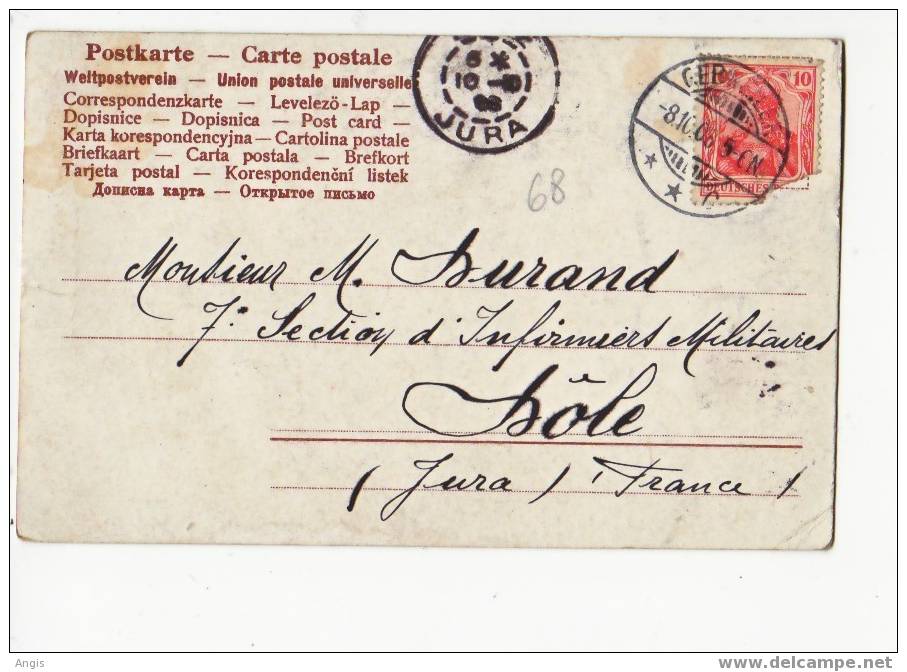 Postkarte — Carte postale
Weltpostverein — Union postale universelle
Correspondenzkarte — Levelezö-Lap —
Dopisnice — Dopisnica — Post card —
Karta korespondencyjna — Cartolina postale
Briefkaart — Carta postala — Brefkort
Tarjeta postal — Korespondenční listek
Дописна карта — Открытое письмо
JURA
-8.10.06
10
DEUTSCHES
68
Monsieur M. Durand
7e Section d'Infirmiers Militaires
Dôle
(Jura) (France)
Angis
www.delcampe.net